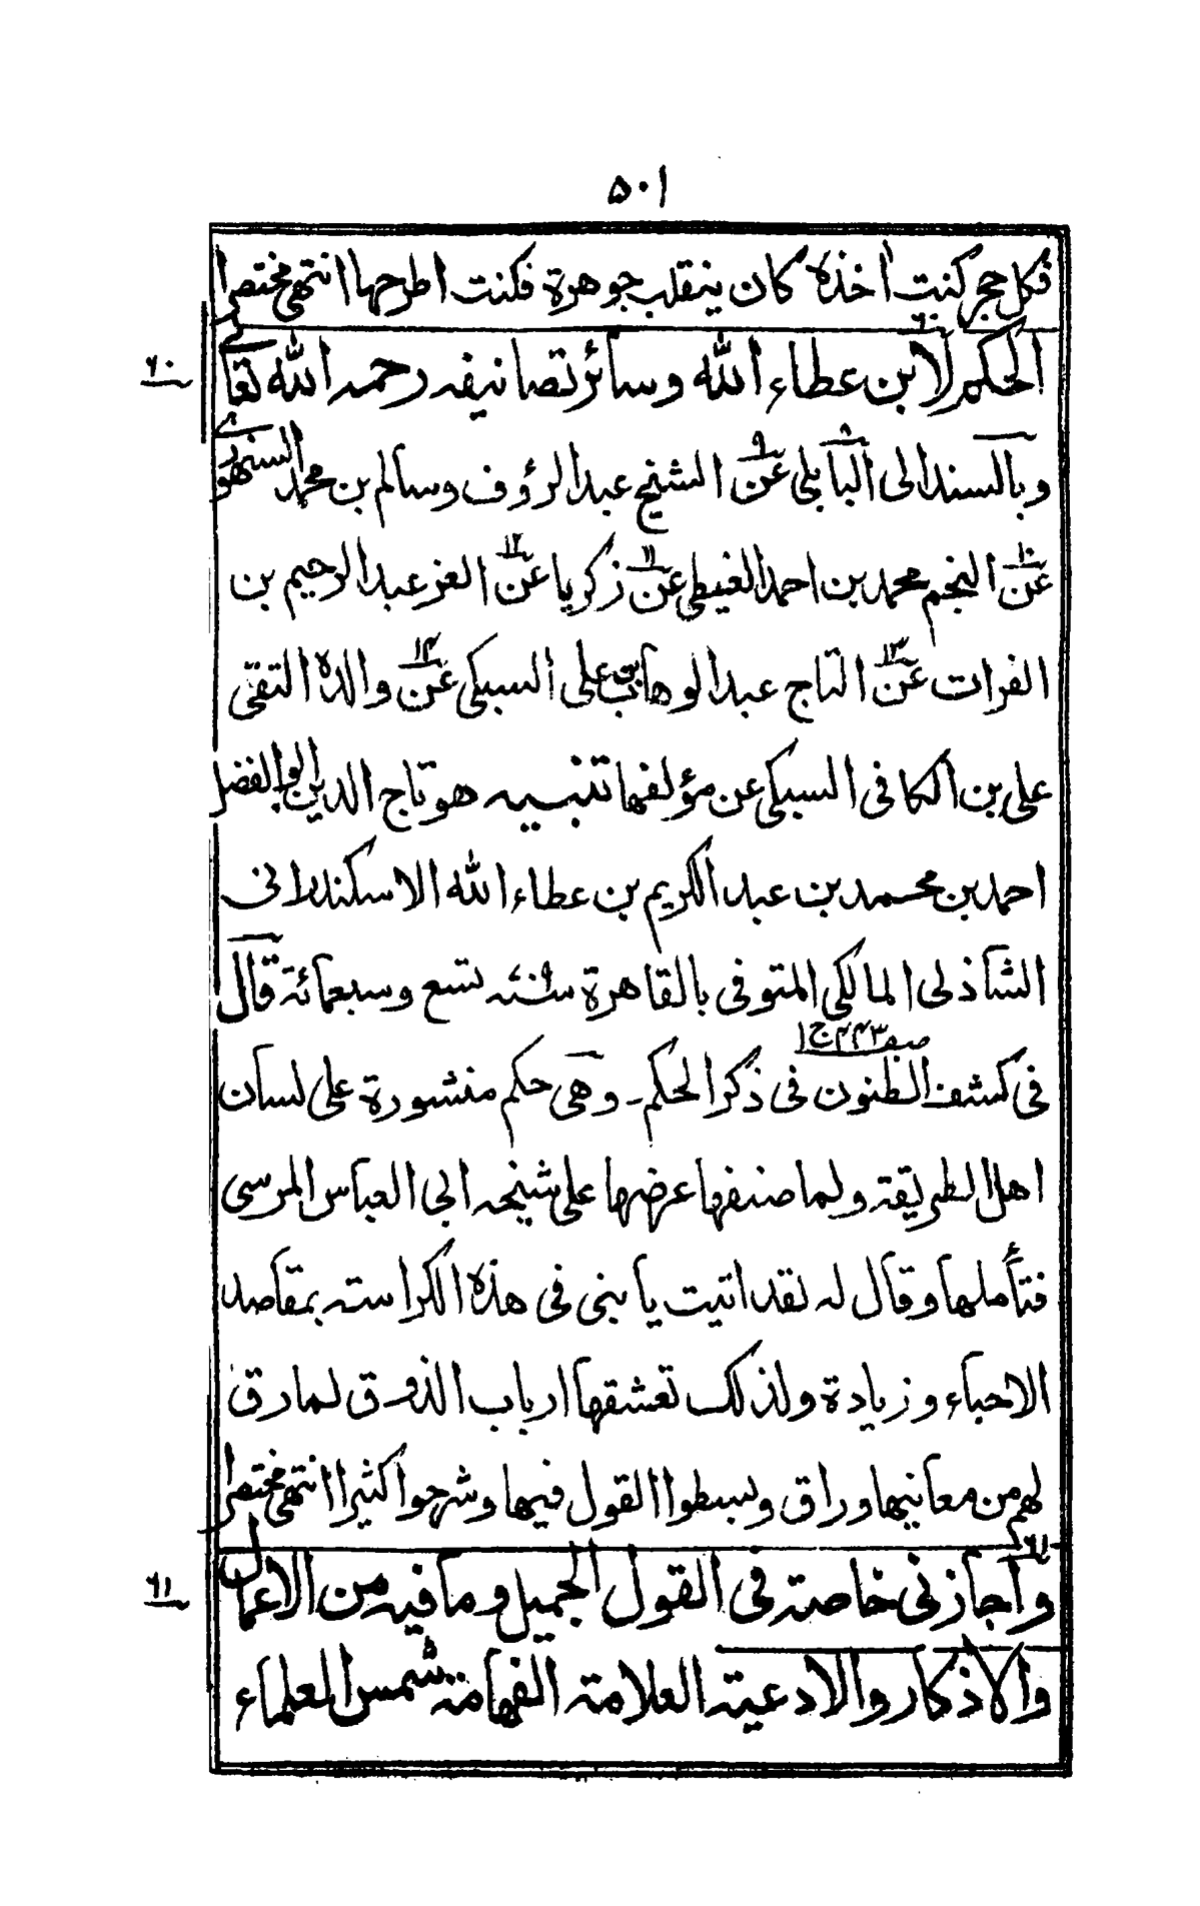 ۵۰۱
فکل حجر کنت اخذه کان ینقلب جوهرة فکنت اطرحها انتهی مختصرا
۶۰
۶۰ الحکم لابن عطاء الله وسائر تصانیفه رحمه الله تعالے
وبالسند الی البابلی ۸ عن ۹ الشیخ عبد الرؤف وسالم بن محمد السنهوری
۱۰ عن النجم محمد بن احمد الغیطی ۱۱ عن زکریا ۱۲ عن العز عبد الرحیم بن
الفرات ۱۳ عن التاج عبد الوهاب بن علی السبکی ۱۴ عن والده التقی
علی بن الکافی السبکی عن مؤلفها تنبیه هو تاج الدین ابو الفضل
احمد بن محمد بن عبد الکریم بن عطاء الله الاسکندرانی
الشاذلی المالکی المتوفی بالقاهرة سنة ۷۰۹ تسع وسبعمائة قال
صفـ ۴۴۳ ج ۱
فی کشف الظنون فی ذکر الحکم - وهی حکم منشورة علی لسان
اهل الطریقة ولما صنفها عرضها علی شیخه ابی العباس المرسی
فتأملها وقال له لقد اتیت یا بنی فی هذه الکراسته بمقاصد
الاحیاء وزیادة ولذلک تعشقها ارباب الذوق لما رق
لهم من معانیها وراق وبسطوا القول فیها وشرحوا کثیرا انتهی مختصرا
۶۱
۶۱ واجازنی خاصة فی القول الجمیل وما فیه من الاعمال
والاذکار والادعیة العلامة الفهامة شمس العلماء